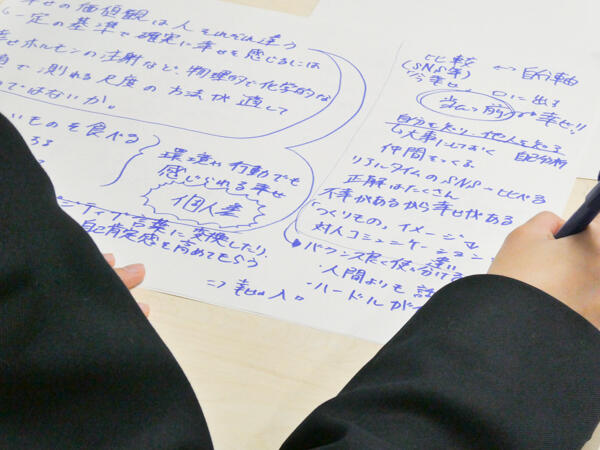 幸せの価値観は人それぞれ違う
一定の基準で確実に幸せを感じるには
幸せホルモンの注射など、物理的で化学的な
で測れる尺度の方法が適して
ではないか。
いものを食べる
環境や行動でも
感じられる幸せ
個人差
ティブな言葉に変換したり、
自己肯定感を高めてもらう
⇒
比較 ↔ 自分軸
(SNS等)
口に出す
当たり前が幸せ
自分を知り、他人を知る
大事にしておく 自己分析
仲間をつくる
リアルタイムのSNS→比べる
正解はたくさん
不幸があるから幸せがある
「つくりもの」イメージ
対人コミュニケーション
バランス良く使い分ける
・人間よりも
・ハードルが